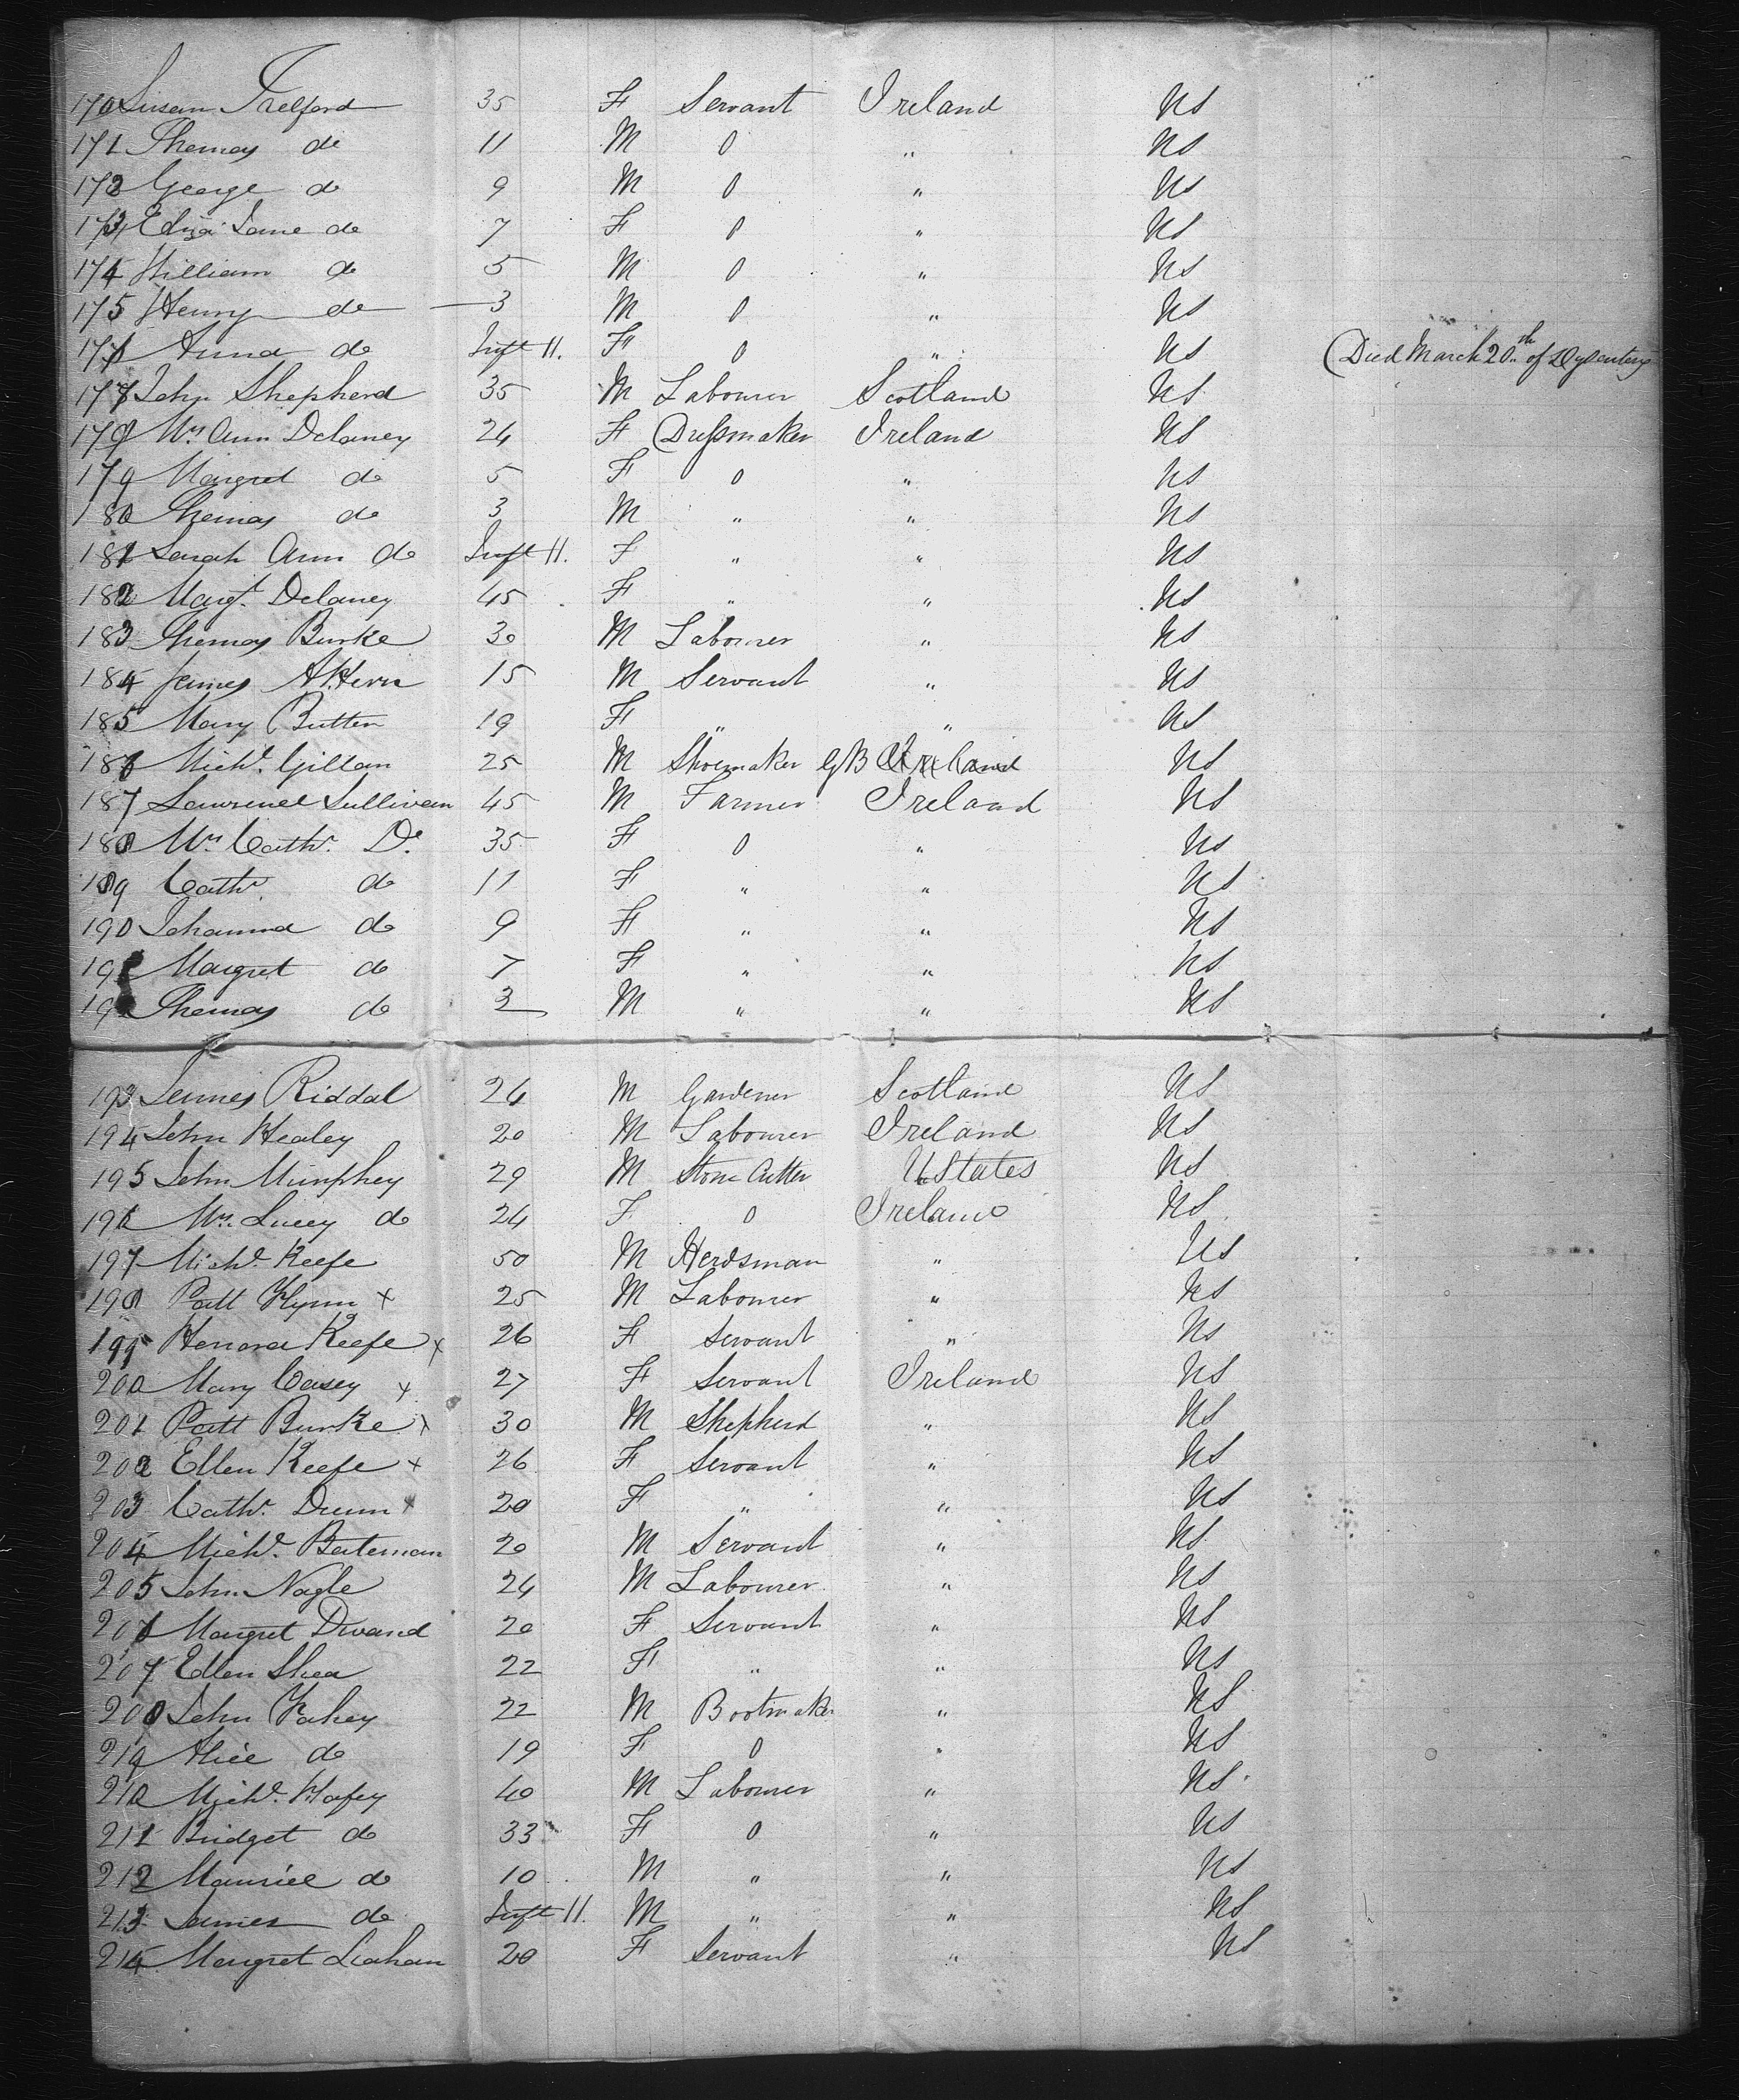 170 Susan Trelford 35 F Servant Ireland US
171 Thomas do 11 M 0 " US
172 George do 9 M 0 " US
173 Eliza Jane do 7 F 0 " US
174 William do 5 M 0 " US
175 Henry do 3 M 0 " US
176 Anna do Inft 11. F 0 " US Died March 20th of Dysentery
177 John Shepherd 35 M Labourer Scotland US
178 Mrs Ann Delaney 24 F Dressmaker Ireland US
179 Margret do 5 F 0 " US
180 Thomas do 3 M " " US
181 Sarah Ann do Inft 11. F " " US
182 Margt. Delaney 45 F " " US
183 Thomas Burke 30 M Labourer " US
184 James AHern 15 M Servant " US
185 Mary Butten 19 F " " US
186 Michl. Gillan 25 M Shoemaker GB Ireland US
187 Lawrence Sullivan 45 M Farmer Ireland US
188 Mrs. Cathr. Do. 35 F 0 " US
189 Cathr. do 11 F " " US
190 Johanna do 9 F " " US
191 Margret do 7 F " " US
192 Thomas do 3 M " " US
193 James Riddal 24 M Gardener Scotland US
194 John Healey 20 M Labourer Ireland US
195 John Murphey 29 M Stone Cutter U States US
196 Mrs. Lucey do 24 F 0 Ireland US
197 Michl. Keefe 50 M Herdsman " US
198 Patt Flynn x 25 M Labourer " US
199 Honora Keefe x 26 F Servant " US
200 Mary Casey x 27 F Servant Ireland US
201 Patt Burke x 30 M Shepherd " US
202 Ellen Keefe x 26 F Servant " US
203 Cathr. Dunn x 20 F " " US
204 Michl. Bateman 20 M Servant " US
205 John Nagle 24 M Labourer " US
206 Margret Dwand 20 F Servant " US
207 Ellen Shea 22 F " " US
208 John Fahey 22 M Bootmaker " US
219 Alice do 19 F 0 " US
210 Michl. Hafey 40 M Labourer " US
211 Bridget do 33 F 0 " US
212 Maurice do 10 M " " US
213 James do Inft 11. M " " US
214 Margret Leahan 20 F Servant " US